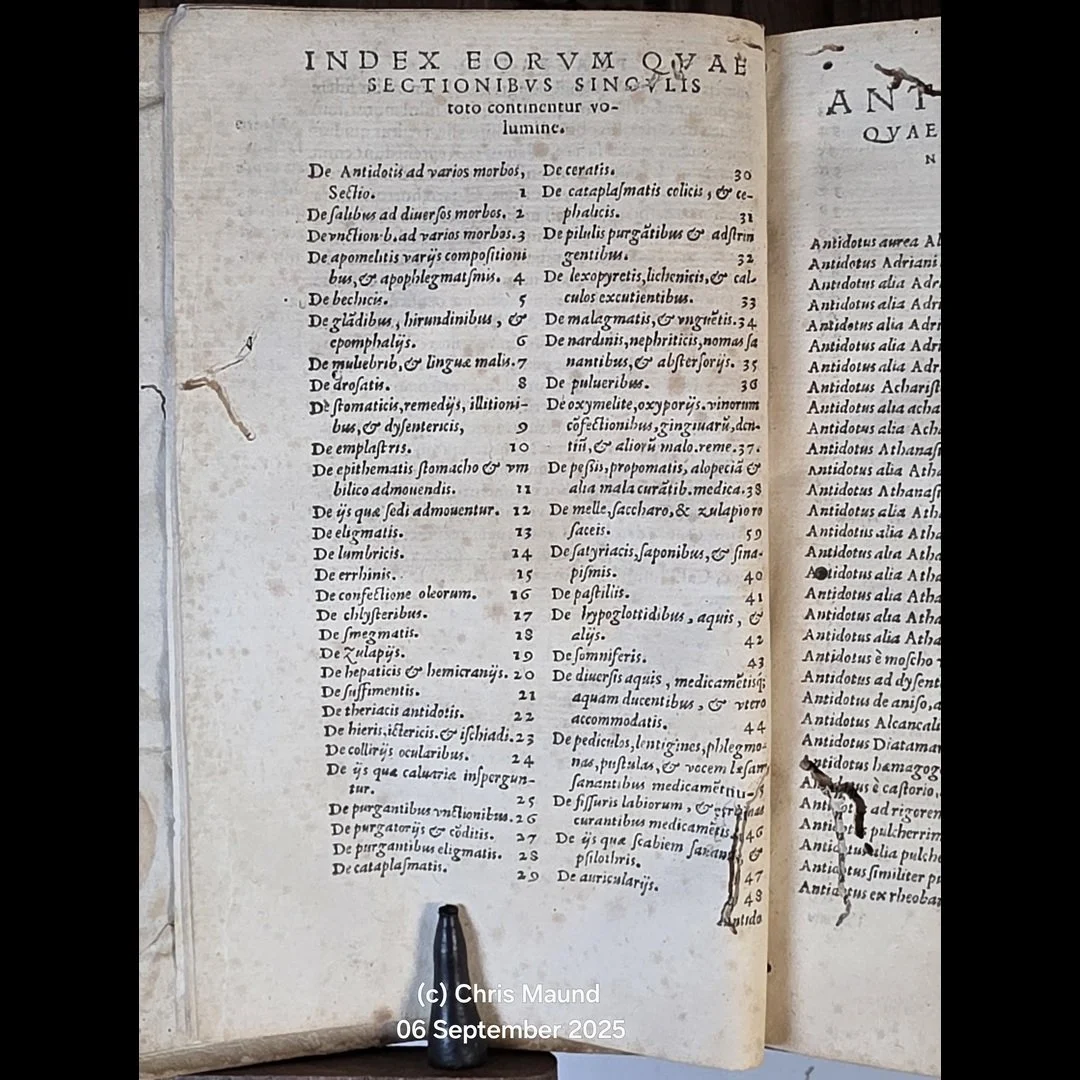 INDEX EORVM QVAE
SECTIONIBVS SINGVLIS
toto continentur vo-
lumine.
De Antidotis ad varios morbos,
Sectio. 1
De salibus ad diuersos morbos. 2
De vnction b. ad varios morbos. 3
De apomelitis varijs compositioni
bus, & apophlegmatsmis. 4
De bechicis. 5
De glādibus, hirundinibus, &
epomphalijs. 6
De muliebrib, & linguæ malis. 7
De drosatis. 8
De stomaticis, remedijs, illitioni-
bus, & dysentericis, 9
De emplastris. 10
De epithematis stomacho & vm
bilico admouendis. 11
De ijs quæ sedi admouentur. 12
De eligmatis. 13
De lumbricis. 14
De errhinis. 15
De confectione oleorum. 16
De chlysteribus. 17
De smegmatis. 18
De zulapijs. 19
De hepaticis & hemicranijs. 20
De suffimentis. 21
De theriacis antidotis. 22
De hieris, ictericis. & ischiadi. 23
De collirijs ocularibus. 24
De ijs quæ caluariæ inspergun-
tur. 25
De purgantibus vnctionibus. 26
De purgatorijs & cōditis. 27
De purgantibus eligmatis. 28
De cataplasmatis. 29
De ceratis. 30
De cataplasmatis colicis, & ce-
phalicis. 31
De pilulis purgātibus & adstrin
gentibus. 32
De lexopyretis, lichenicis, & cal-
culos excutientibus. 33
De malagmatis, & vnguētis. 34
De nardinis, nephriticis, nomas sa
nantibus, & abstersorijs. 35
De pulueribus. 36
De oxymelite, oxyporijs. vinorum
cōfectionibus, gingiuarū, den-
tiū, & aliorū malo. reme. 37.
De pessis, propomatis, alopeciā &
alia mala curātib. medica. 38
De melle, saccharo, & zulapio ro
saceis. 59
De satyriacis, saponibus, & sina-
pismis. 40
De pastillis. 41
De hypoglottidibus, aquis, &
alijs. 42
De somniferis. 43
De diuersis aquis, medicamētisq;
aquam ducentibus, & vtero
accommodatis. 44
De pediculos, lentigines, phlegmo-
nas, pustulas, & vocem læsam
sanantibus medicamētis
De fissuris labiorum, &
curantibus medicamētis. 46
De ijs quæ scabiem sanant, &
psilothris. 47
De auricularijs. 48
Antido
ANT
QVAE
N
Antidotus aurea Al
Antidotus Adriani
Antidotus alia Adr
Antidotus alia Adr
Antidotus alia Adri
Antidotus alia Adri
Antidotus alia Adri
Antidotus Acharist
Antidotus alia acha
Antidotus alia Ach
Antidotus Athanasi
Antidotus alia Atha
Antidotus Athanasi
Antidotus alia Atha
Antidotus alia Atha
Antidotus alia Atha
Antidotus alia Atha
Antidotus alia Atha
Antidotus alia Atha
Antidotus alia Atha
Antidotus è moscho
Antidotus ad dysent
Antidotus de aniso, a
Antidotus Alcancali
Antidotus Diatamar
Antidotus hæmagog
Antidotus è castorio,
Antidotus ad rigorem
Antidotus pulcherrim
Antidotus alia pulche
Antidotus similiter pu
Antidotus ex rheobar
(c) Chris Maund
06 September 2025